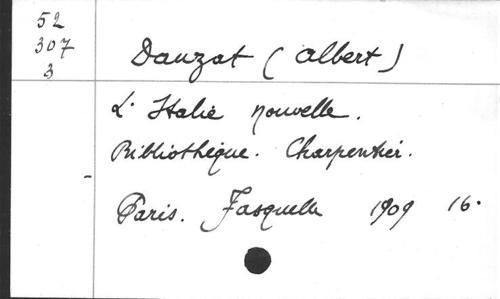 52
307
3
Dauzat (Albert)
L'Italie nouvelle.
Bibliothèque. Charpentier.
Paris. Fasquelle 1909 16°